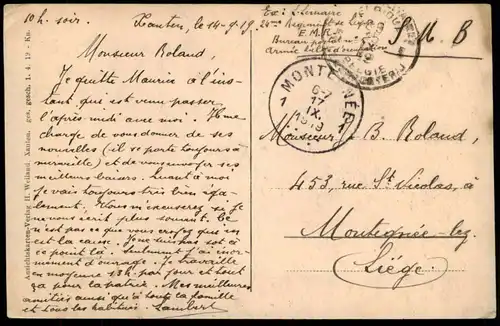 10h. soir. Xanten, le 14-9-19
Monsieur Roland,
Je quitte Maurice à l'ins-
tant qui est venu passer
l'après midi avec moi. Il me
charge de vous donner de ses
nouvelles (il se porte toujours à
merveille) et de vous envoyer ses
meilleurs baisers. Quant à moi
je vais toujours très bien éga-
lement. Vous m'excuserez si je
ne vous écrit plus souvent. Ce
n'est pas ce que vous croyez qui en
est la cause. Je ne suis pas sot à
ce point là. Seulement j'ai énor-
mement d'ouvrage. Je travaille
en moyenne 13h. par jour et tout
ça pour la patrie. Mes meilleures
amitiés ainsi qu'à toute la famille
et tous les habitués. Lambert
Ansichtskarten-Verlag H. Weihaus, Xanten. ges. gesch. 1. 4. 19 - Ka.
Ex: Lemaire
24me Régiment de Ligne
E. M. R.
Bureau postal n°
Armée belge d'occupation
S. M. B
BELGIE
MONTEGNÉE
6-7
17
IX
1919
1 1
Monsieur B. Roland,
453, rue St Nicolas, à
Montegnée-lez-
Liège